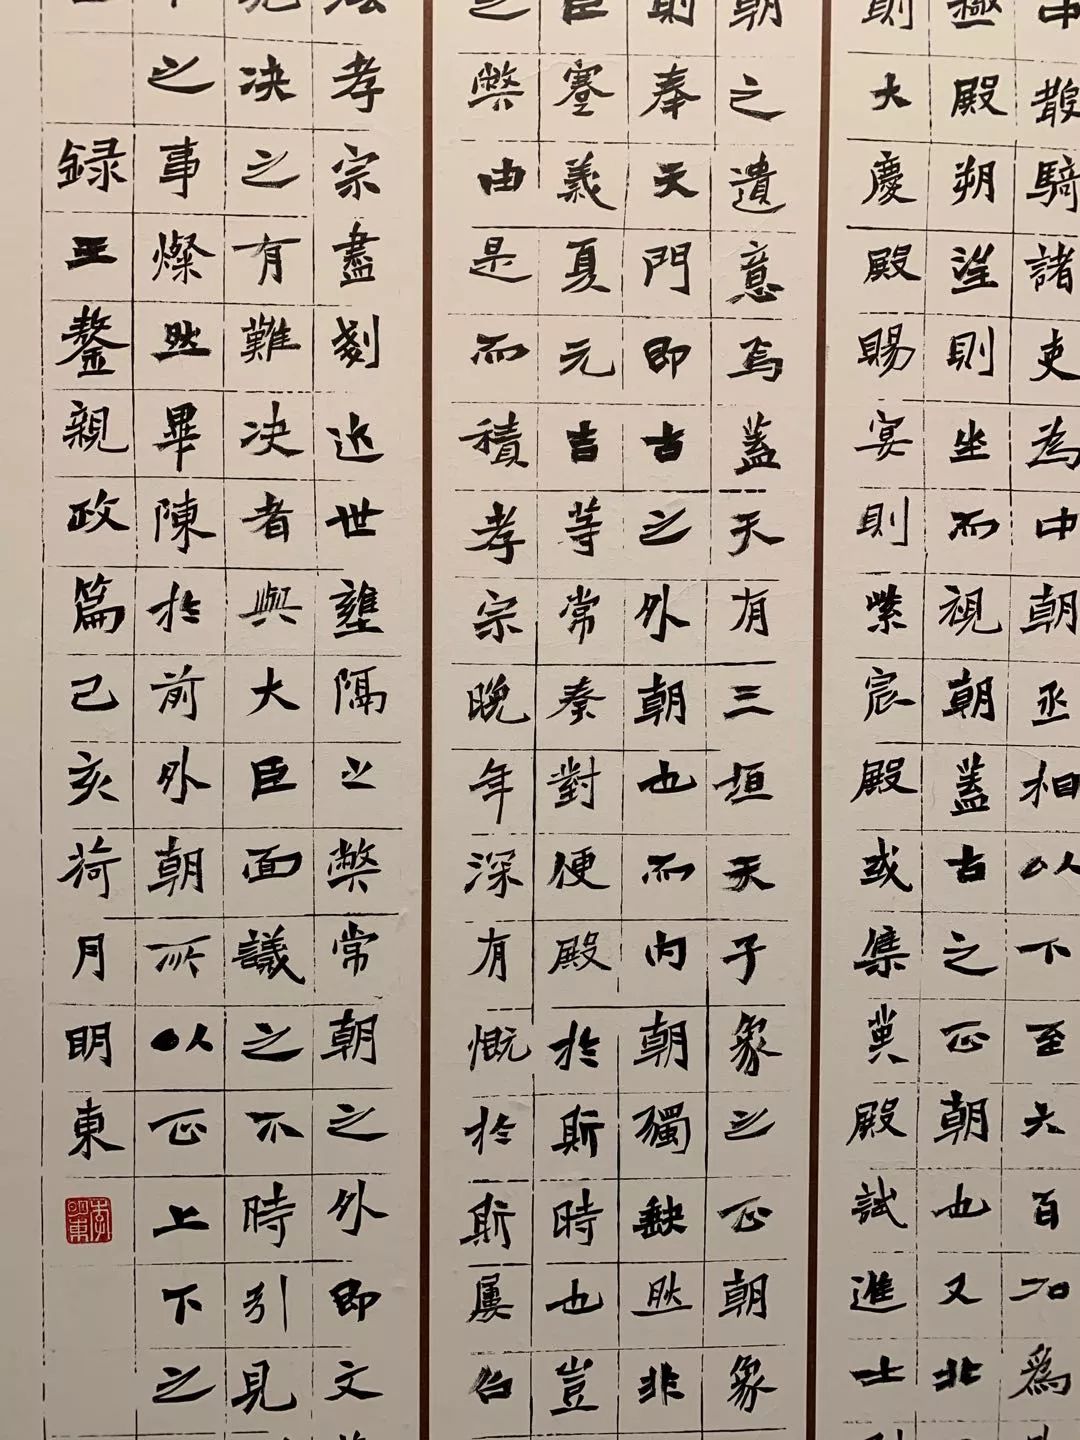 中散騎諸吏為中朝丞相以下至六百石為
極殿朔望則坐而視朝蓋古之正朝也又北
則大慶殿賜宴則紫宸殿或集英殿試進士
朝之遺意焉蓋天有三垣天子象之正朝象
則奉天門即古之外朝也而内朝獨缺然非
臣蹇義夏元吉等常奏對便殿於斯時也豈
之弊由是而積孝宗晚年深有慨於斯屢召
法孝宗盡剗近世壅隔之弊常朝之外即文
見决之有難决者與大臣面議之不時引見
之事燦然畢陳於前外朝所以正上下之
録王鏊親政篇己亥荷月明東
李明東